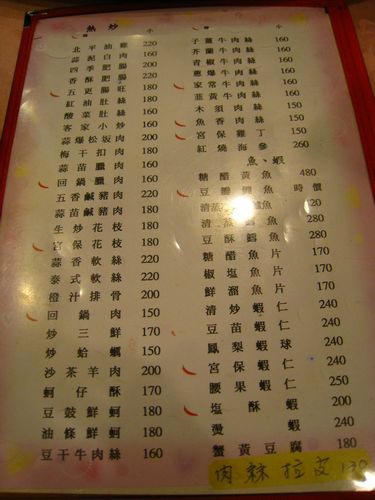 熱炒 小
北平油雞 220
蒜泥白肉 160
四季肥腸 200
香酥肥腸 220
五更腸旺 180
紅油肚絲 180
酸菜肚絲 180
客家小炒 160
蒜爆松坂肉 200
梅干扣肉 180
蒜苗臘肉 180
回鍋臘肉 160
五香鹹豬肉 220
蒜苗鹹豬肉 180
生炒花枝 180
宮保花枝 180
蒜香軟絲 220
泰式軟絲 220
橙汁排骨 200
回鍋肉 150
炒三鮮 170
炒蛤蠣 150
沙茶羊肉 200
蚵仔酥 170
豆鼓鮮蚵 180
油條鮮蚵 180
豆干牛肉絲 160
小
子薑牛肉絲 160
芥蘭牛肉絲 160
青椒牛肉絲 160
蔥爆牛肉絲 160
家常牛肉絲 160
韮黃牛肉絲 160
木須肉絲 150
魚香肉絲 150
宮保雞丁 150
紅燒海參 260
魚、蝦
糖醋黃魚 480
豆瓣魚 時價
清蒸
清蒸魚 280
豆酥鱈魚 280
糖醋魚片 170
椒塩魚片 170
鮮溜魚片 170
清炒蝦仁 240
豆苗蝦仁 240
鳳梨蝦球 240
宮保蝦仁 240
腰果蝦仁 250
塩酥蝦 200
燙蝦 240
蟹黃豆腐 180
肉絲拉皮 130